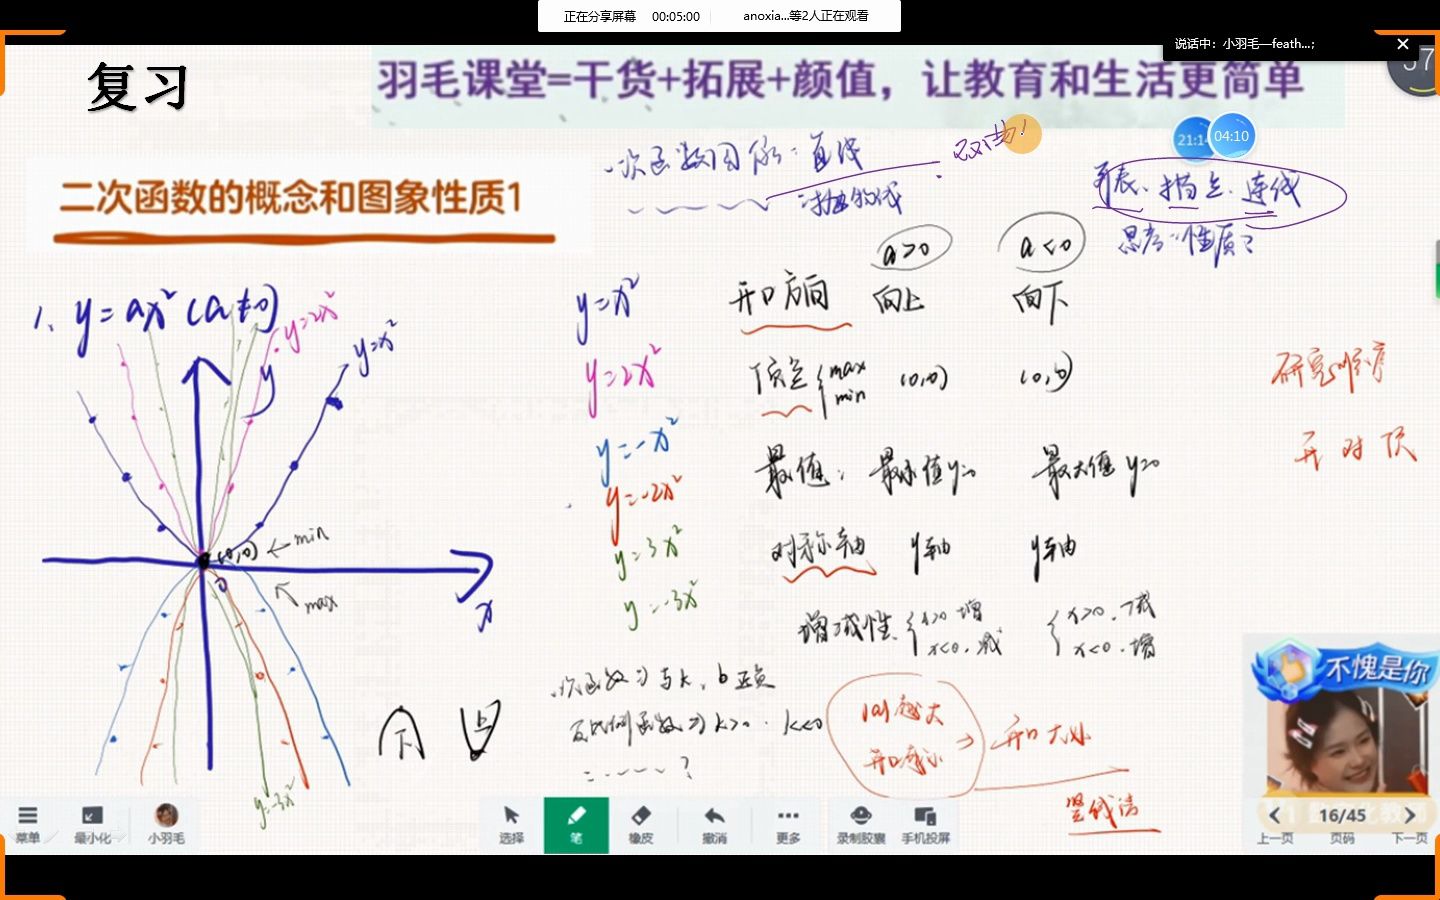 正在分享屏幕 00:05:00 anoxia...等2人正在观看
说话中: 小羽毛—feath...;
复习
羽毛课堂=干货+拓展+颜值，让教育和生活更简单
21:1
04:10
57
一次函数图像：直线
双曲
抛物线
列表、描点、连线
思考：性质？
二次函数的概念和图象性质1
a>0 a<0
1、y=ax²(a≠0)
y=2x²
y=x²
y
y=x²
开口方向 向上 向下
y=2x²
顶点 max min (0,0) (0,0)
研究顺序
y=-x²
开 对 顶
最值： 最小值y=0 最大值y=0
y=-2x²
(0,0) ← min
y=3x²
对称轴 y轴 y轴
0
max
x
y=-3x²
增减性 x>0 增 x<0，减 x>0，减 x<0，增
一次函数 与k、b正负
反比例函数 k>0、k<0
二 ?
|a|越大
开口越小
开口大小
竖线法
下 上
y=-3x²
不愧是你
菜单 最小化 小羽毛 选择 笔 橡皮 撤消 更多 录制胶囊 手机投屏
16/45
上一页 页码 下一页